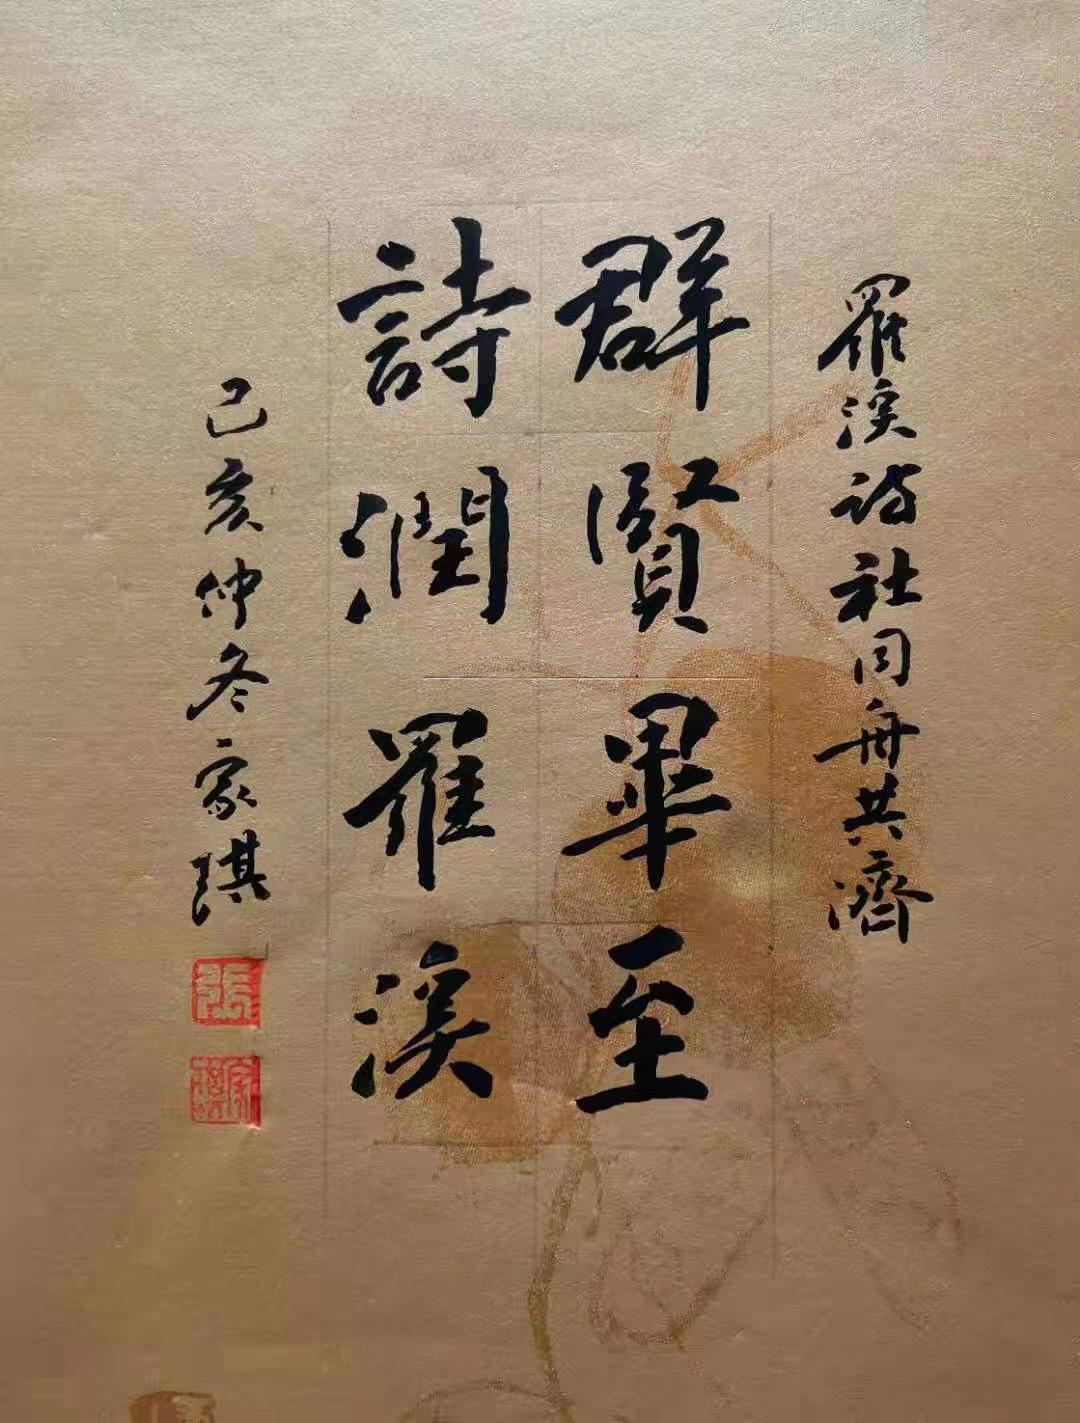 羅溪诗社同舟共濟
群賢畢至
詩潤羅溪
己亥仲冬家琪
張
家琪